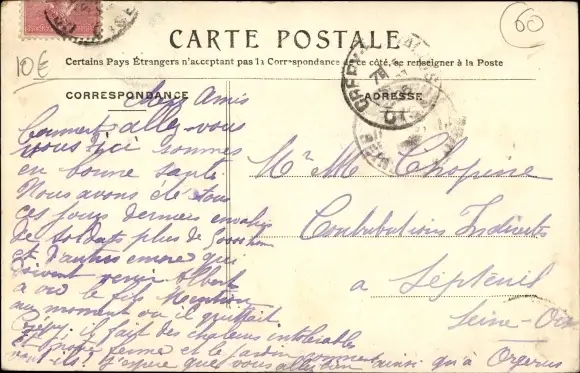 60
10€
CARTE POSTALE
Certains Pays Étrangers n'acceptant pas la Correspondance de ce côté, se renseigner à la Poste
CORRESPONDANCE
ADRESSE
Chers Amis
Comment allez-vous
nous ici sommes
en bonne santé
Nous avons été tous
ces jours derniers envahis
de soldats plus de
et d'autres encore que
doivent venir Albert
a vu le fils
au moment où il quittait
Crépy; il fait des chaleurs intolérables
et la ferme et le jardin comment
vont-ils? J'espère que vous allez bien ainsi qu'à Orgerus
Mr Me Chopine
Contributions Indirectes
a Septeuil
Seine-Oise